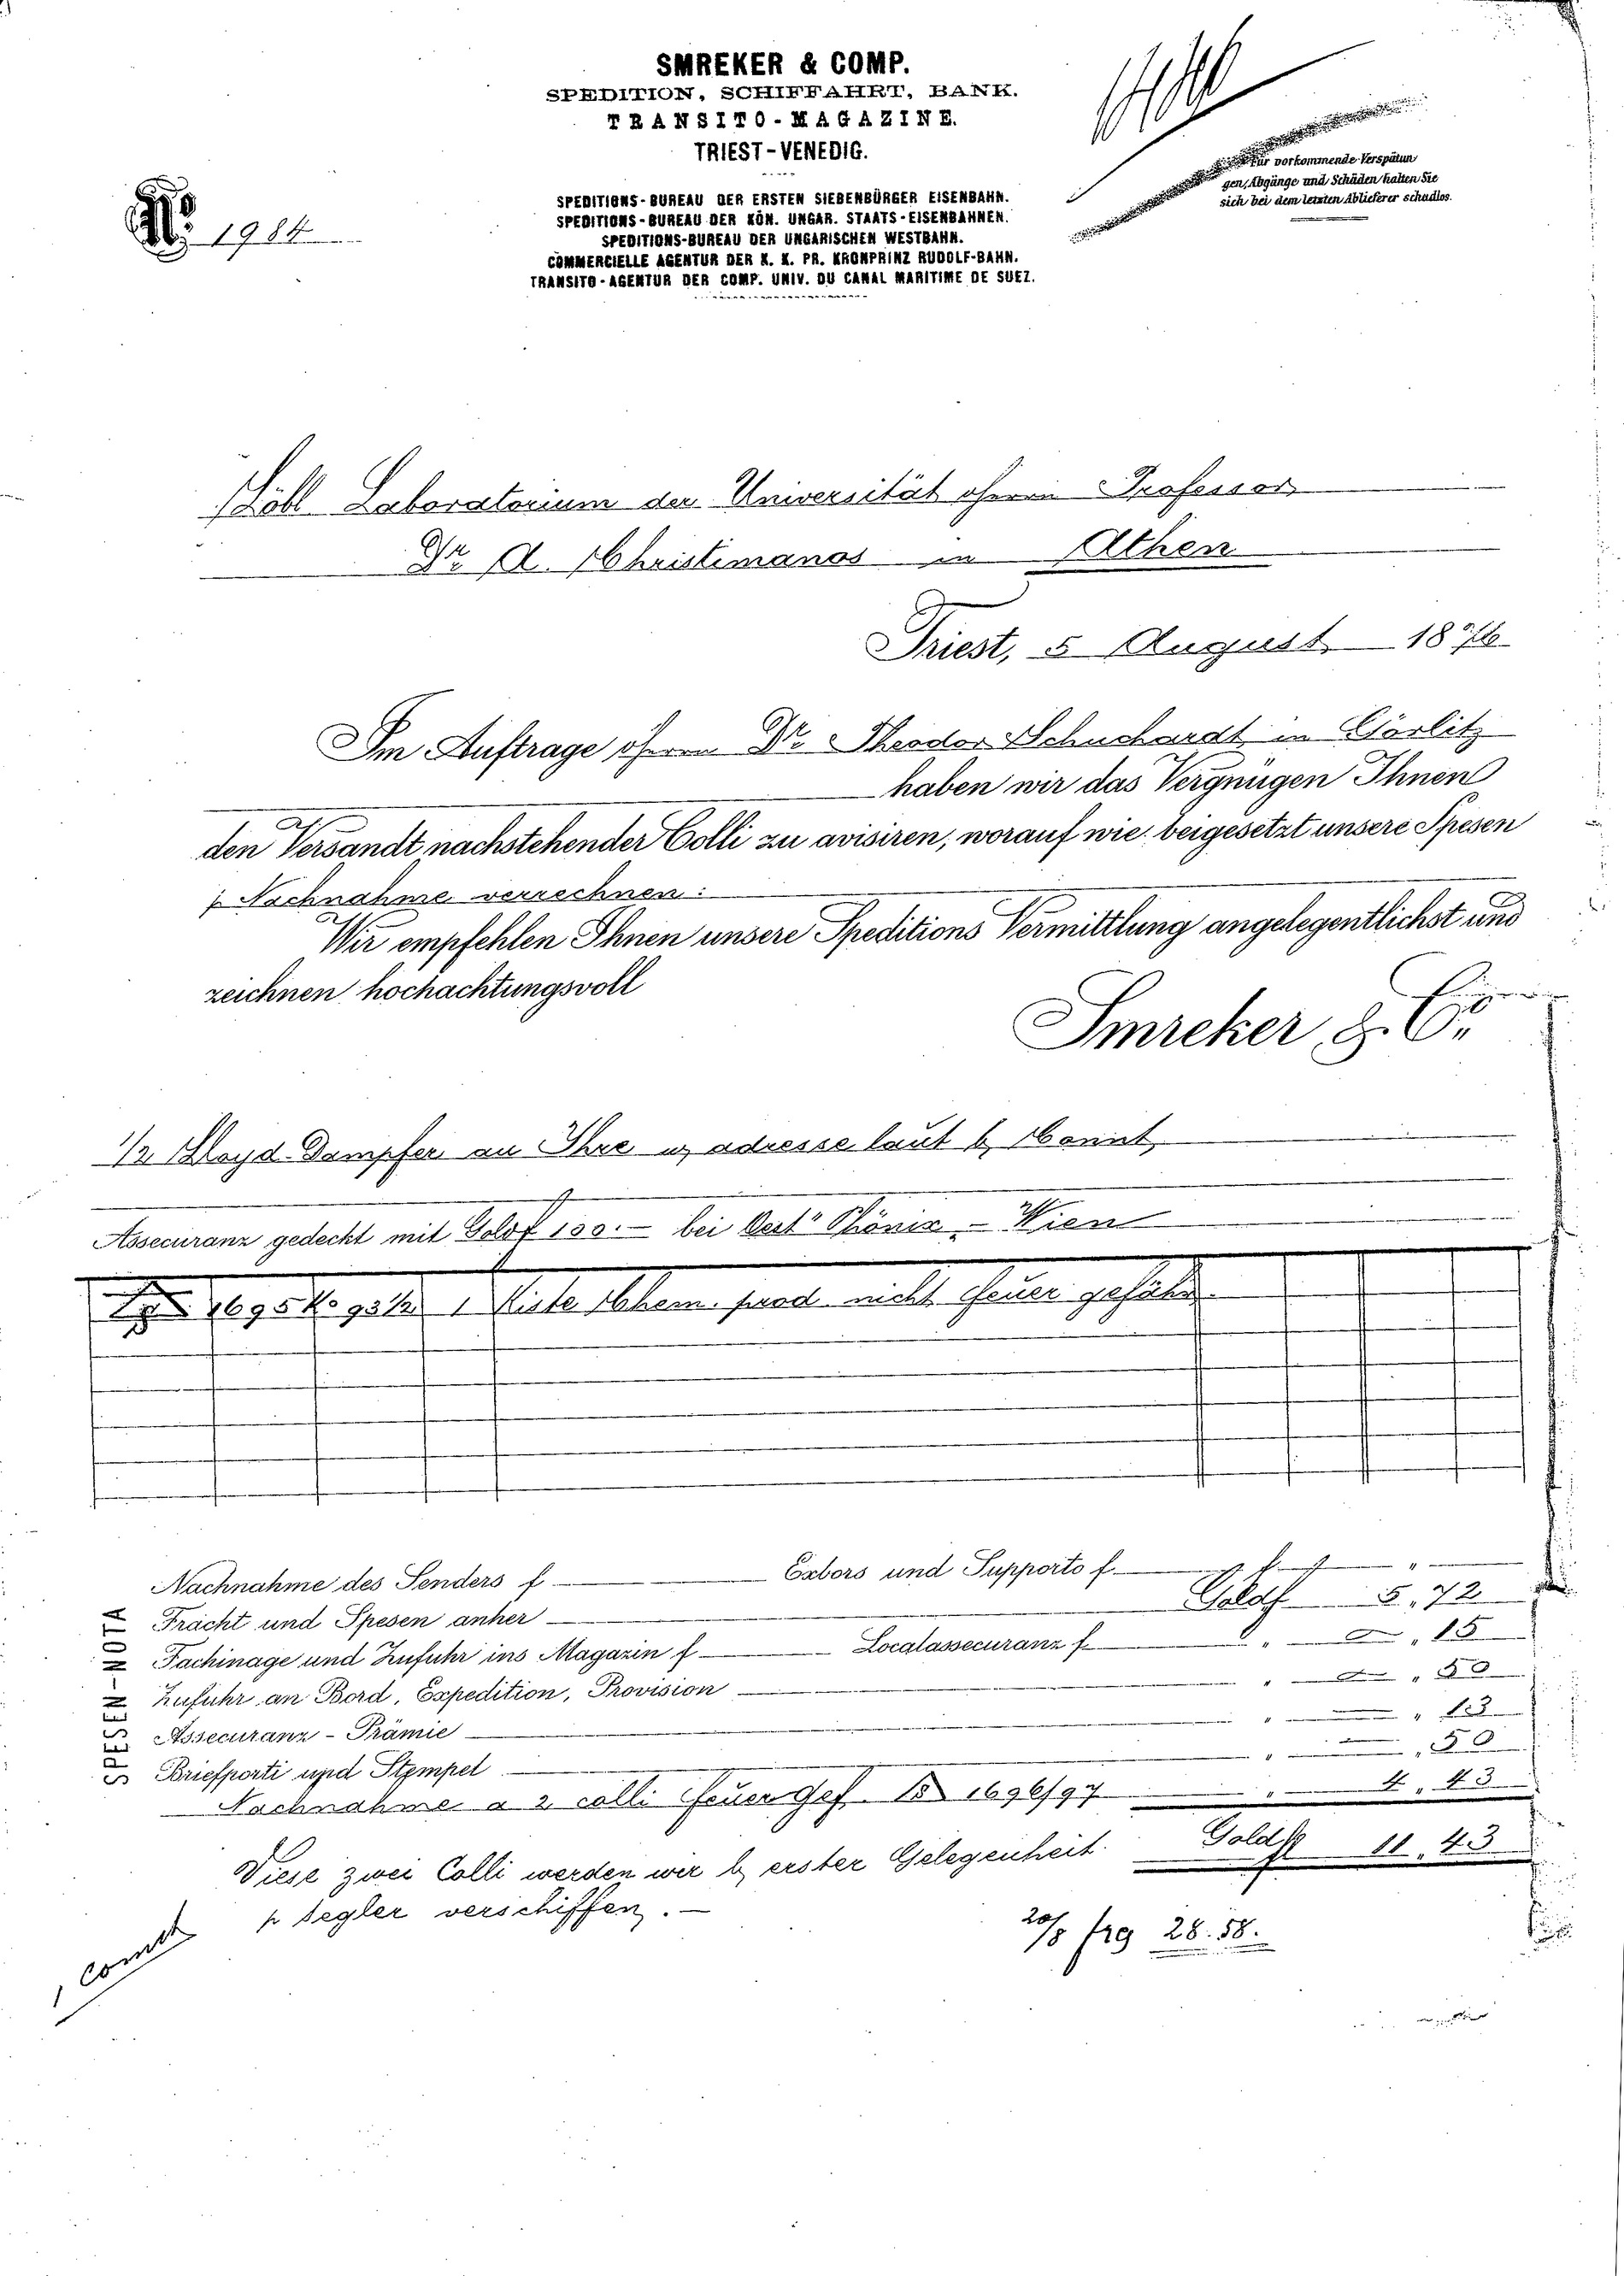 SMREKER & COMP.
SPEDITION, SCHIFFAHRT, BANK.
TRANSITO-MAGAZINE.
TRIEST-VENEDIG.
Für vorkommende Verspätun
gen, Abgänge und Schäden halten Sie
sich bei dem letzten Ablieferer schadlos.
SPEDITIONS-BUREAU DER ERSTEN SIEBENBÜRGER EISENBAHN.
SPEDITIONS-BUREAU DER KÖN. UNGAR. STAATS-EISENBAHNEN.
SPEDITIONS-BUREAU DER UNGARISCHEN WESTBAHN.
COMMERCIELLE AGENTUR DER K. K. PR. KRONPRINZ RUDOLF-BAHN.
TRANSITO-AGENTUR DER COMP. UNIV. DU CANAL MARITIME DE SUEZ.
No. 1984
Löbl Laboratorium der Universität Herrn Professor
Dr A. Christimanos in Athen
Triest, 5 August 1876
Im Auftrage Herrn Dr. Theodor Schuchardt in Görlitz
haben wir das Vergnügen Ihnen
den Versandt nachstehender Colli zu avisiren, worauf wie beigesetzt unsere Spesen
p. Nachnahme verrechnen:
Wir empfehlen Ihnen unsere Speditions Vermittlung angelegentlichst und
zeichnen hochachtungsvoll
Smreker & Co.
Lloyd Dampfer an Ihre w. adresse laut
Assecuranz gedeckt mit Goldf 100.- bei Oest. Phönix - Wien
1 Kiste Chem. prod. nicht feuer gefährl.
Nachnahme des Senders f Esbors und Supporto f. "
Fracht und Spesen anher Goldf 5.72
Fachinage und Zufuhr ins Magazin f Localassecuranz f. " ".15
Zufuhr an Bord, Expedition, Provision " ".50
Assecuranz-Prämie " ".13
Briefporti und Stempel " ".50
SPESEN-NOTA
Nachnahme a 2 colli feuer Gef. 1696/97 " 4.43
Goldf 11.43
Diese zwei Colli werden wir b. erster Gelegenheit
p Segler verschiffen.-
20/8 frg 28.58.